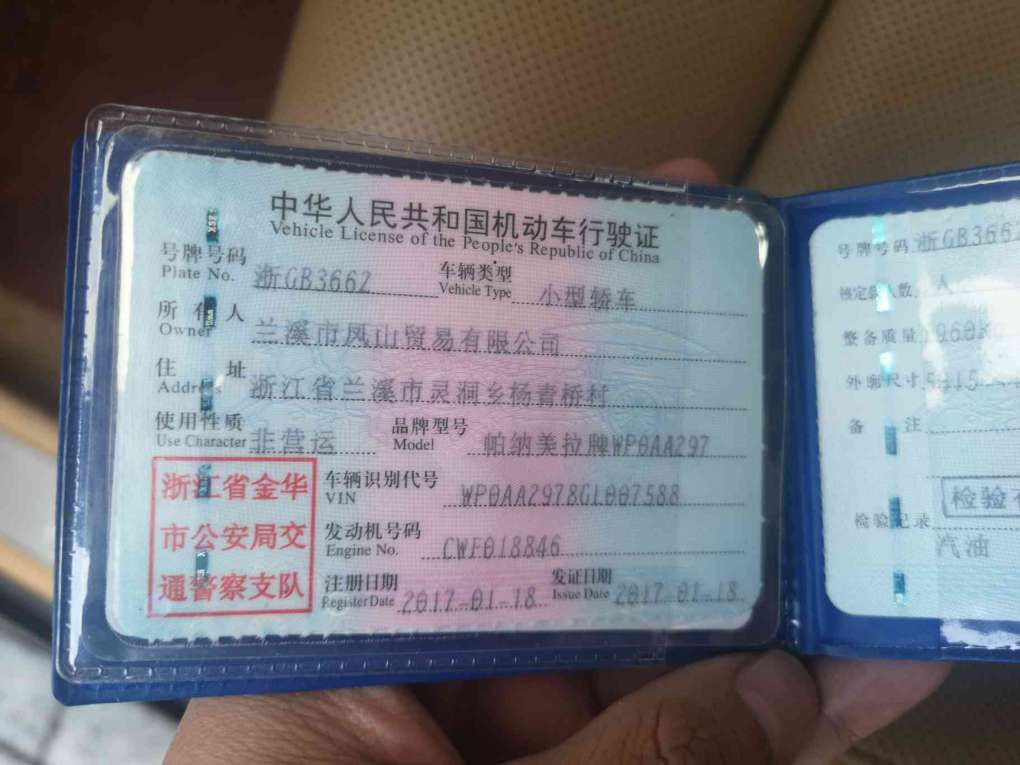 中华人民共和国机动车行驶证
Vehicle License of the People's Republic of China
号牌号码 Plate No. 浙GB3662 车辆类型 Vehicle Type 小型轿车
所有人 Owner 兰溪市凤山贸易有限公司
住址 Address 浙江省兰溪市灵洞乡杨青桥村
使用性质 Use Character 非营运 品牌型号 Model 帕纳美拉牌WP0AA297
浙江省金华
市公安局交
通警察支队
车辆识别代号 VIN WP0AA2978GL007588
发动机号码 Engine No. CWF018846
注册日期 Register Date 2017-01-18 发证日期 Issue Date 2017-01-18
号牌号码 浙GB3662
核定载人数 人
整备质量 1960kg
外廓尺寸
备注
检验记录
检验
汽油